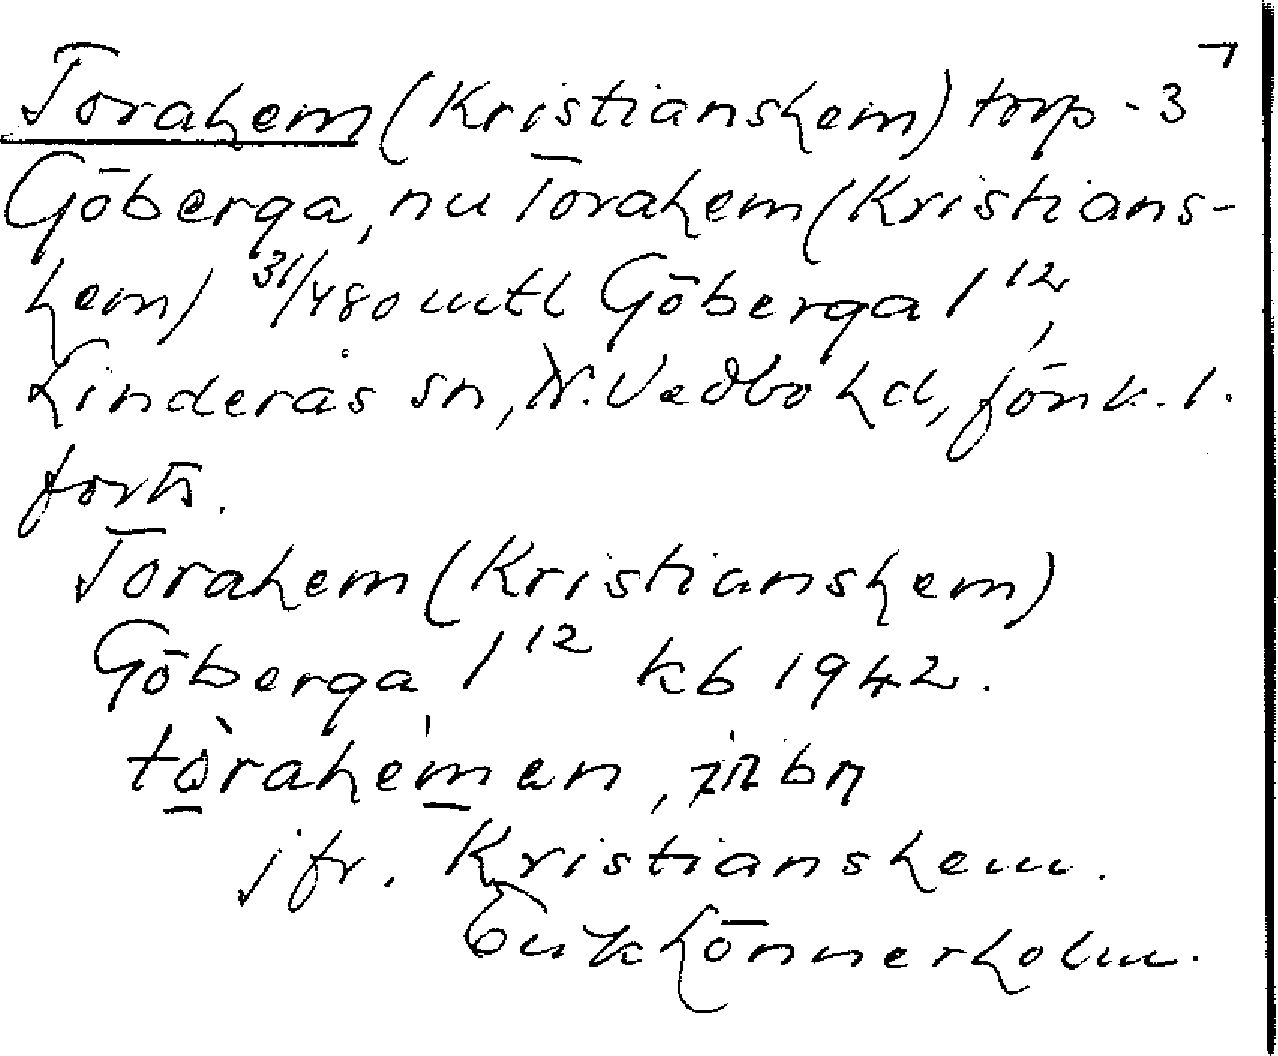 Torahem (Kristianshem) torp - 3
Göberga, nu Torahem (Kristians-
hem) 31/480 mtl Göberga 1¹²,
Linderås sn, N. Vedbo hd, Jönk. l.
forts.
Torahem (Kristianshem)
Göberga 1¹² kb 1942.
tòrahem̲en,
jfr. Kristianshem.
Erik Lönnerholm.